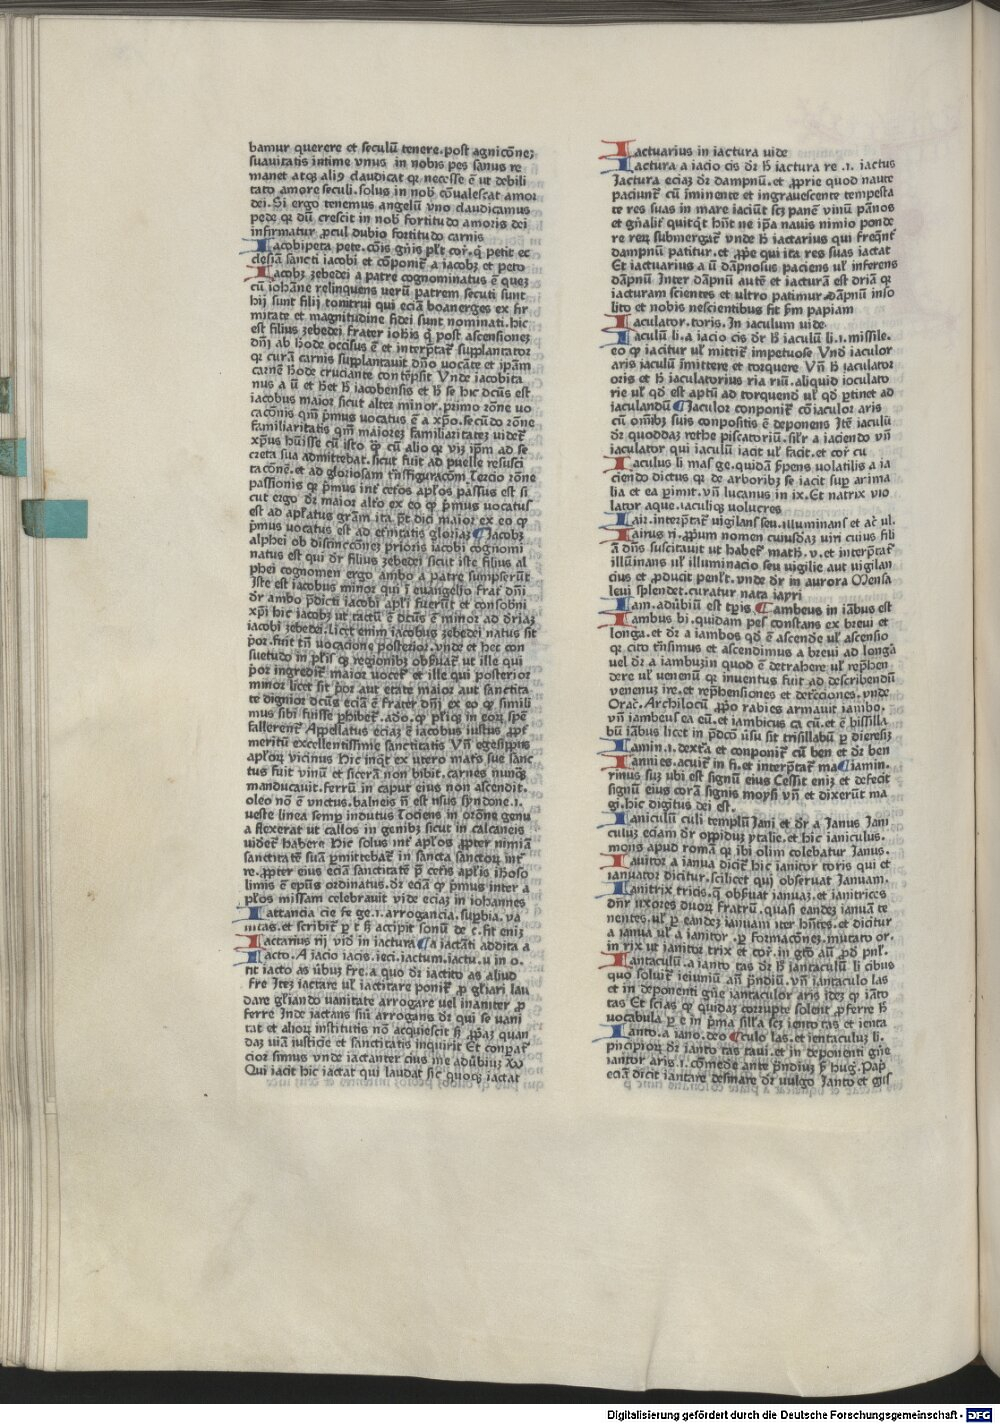 bamur querere et seculū tenere. post agnicōneʒ
suauitatis intime vnus in nobis pes sanus re
manet atqʒ aliꝰ claudicat qꝛ necesse ē ut debili
tato amore seculi. solus in nob̄ cōualescat amor
dei. Si ergo tenemus angelū vno claudicamus
pede qꝛ dū crescit in nob̄ fortitudo amoris dei
infirmatur ꝓcul dubio fortitudo carnis
Iacobipeta pete. cōis gn̄is pl̄r cor̄. q̇ petit ec
clesiā sancti iacobi et cōponit̄ a iacobꝫ et peto
Iacobꝫ zebedei a patre cognominatus ē queꝫ
cū iohāne relinquens verū patrem secuti sunt
hij sunt filij tonitrui qui eciā boanerges ex fir
mitate et magnitudine fidei sunt nominati. hic
est filius zebedei frater iohis q̇ post ascensioneꝫ
dn̄j ab h̄ode occisus ē et interp̄tat̄ supplantator
qꝛ curā carnis supplantauit dn̄o vocāte et ip̄am
carnē h̄ode cruciante contēpsit Vnde iacobita
nus a ū et h̄et h̄ iacobensis et h̄ se hic dcūs est
iacobus maior sicut alter minor. primo rōne uo
cacōnis qm̄ p̄mus vocatus ē a xp̄o. secūdo rōne
familiaritatis qm̄ maioreꝫ familiaritateꝫ videt̄
xp̄us hūisse cū isto qꝫ cū alio qꝛ viꝫ ip̄m ad se
creta sua admittebat. sicut fuit ad puelle resusci
tacōnē. et ad gloriosam t̄nsfiguracōm Tercio rōne
passionis qꝛ p̄mus int̄ cet̄os ap̄los passus est si
cut ergo dr̄ maior alt̄o ex eo qꝫ p̄mus vocatus
est ad ap̄latus gram̄ ita p̄t dici maior ex eo qꝫ
p̄mus vocatus est ad et̄nitatis gloriaꝫ ¶ Jacobꝫ
alphei ob distinccōneꝫ prioris iacobi cognomi
natus est qui dr̄ filius zebedei sicut iste filius al
phei cognomen ergo ambo a patre sumpserūt
Iste est iacobus minor qui ī euangelio frat̄ dn̄i
dr̄ ambo p̄dicti iacobi ap̄li fuerūt et consobn̄i
xp̄i hic iacobꝫ ut tactū ē dictus ē minor ad dr̄iaꝫ
iacobi zebedei. licet enim iacobus zebedei natus sit
p̄or. fuit tn̄ vocacione posterior. vnde et hec con
suetudo in pl̄is qꝫ regionibꝫ obseruat̄ ut ille qui
p̄or ingredit̄ maior vocet̄ et ille qui posterior
minor licet sit p̄or aut etate maior aut sanctita
te dignior dcūs eciā ē frater dn̄j ex eo qꝫ simili
mus sibi fuisse ꝓhibet̄. adeo. qꝫ pl̄iqꝫ in eorꝫ spē
fallerent̄ Appellatus eciaꝫ ē iacobus iustus ꝓpt̄
meritū excellentissime sanctitatis Vn̄ egesippus
ap̄lorꝫ vicinus Hic inqt̄ ex utero mat̄s sue sanc
tus fuit vinū et sicerā non bibit. carnes nunqꝫ
manducauit. ferrū in caput eius non ascendit.
oleo nō ē vnctus. balneis n̄ est vsus syndone. i.
ueste linea semꝑ indutus Tociens in orōne genu
a flexerat ut callos in genibꝫ sicut in calcaneis
videret̄ habere Hic solus int̄ ap̄los ꝓpter nimiā
sanctitatē suā ꝑmittebat̄ in sancta sanctorꝫ int̄
re. ꝓpter eius eciā sanctitatē p̄ cet̄is ap̄lis iheroso
limis ē ep̄us ordinatus. dr̄ eciā qꝫ p̄mus inter a
p̄los missam celebrauit vide eciaꝫ in iohannes
Iattancia cie fe ge. i. arrogancia. sup̄bia. va
nitas. et scribit̄ ꝑ t h̄ accipit sonū de c. sit eniꝫ
Iactarius rij vid̄ in iactura ¶ a iactāti addita a
Iacto. A iacio iacis. ieci. iactum. iactu. u in o.
fit iacto as v̄būꝫ fre. a quo dr̄ iactito as aliud
fre Iteꝫ iactare ul̄ iactitare ponit̄ ꝓ gl̄iari lau
dare gl̄iando vanitate arrogare uel inaniter ꝓ
ferre Inde iactans siū arrogans dr̄ qui se vani
tat et aliorꝫ institutis nō acquiescit sꝫ ꝓp̄aꝫ quan
daꝫ viā iusticie et sanctitatis inquirit Et conꝑat̄
cior simus vnde iactanter cius ime adūbiuꝫ Xꝟ
Qui iacit hic iactat qui laudat sic quoqꝫ iactat
Iactuarius in iactura uide
Iactura a iacio cis dr̄ h̄ iactura re .i. iactus
Jactura eciaꝫ dr̄ dampnū. et ꝓprie quod naute
paciunt̄ cū īminente et ingrauescente tempesta
te res suas in mare iaciūt scꝫ panē vinū pānos
et gn̄alit̄ quitqͥt hn̄t ne ip̄a nauis nimio ponde
re rerꝫ submergat̄ vnde h̄ iactarius qui freqn̄t̄
dampnū patitur. et ꝓpe qui ita res suas iactat
Et iactuarius a ū dāpnosus paciens ul̄ inferens
dāpnū Inter dāpnū autē et iacturā est dr̄ia qꝛ
iacturam scientes et ultro patimur dāpnū inso
lito et nobis nescientibus fit ẜm papiam
Iaculator. toris. In iaculum uide.
Iaculū li. a iacio cis dr̄ h̄ iaculū li. i. missile.
eo qꝫ iacitur ul̄ mittit̄ impetuose Vnd̄ iaculor
aris iaculū īmittere et torquere Vn̄ h̄ iaculator
oris et h̄ iaculatorius ria riū. aliquid ioculato
rie ul̄ qd̄ est aptū ad torquend̄ ul̄ qd̄ ꝑtinet ad
iaculandū ¶ Iaculor conponit̄ cō iaculor aris
cū om̄ibꝫ suis conpositis ē deponens Itē iaculū
dr̄ quoddaꝫ rethe piscatoriū. sil̄r a iaciendo vn̄
iaculator qui iaculū iacit ul̄ facit. et cor̄ cu
Iaculus li mas ge. quidā ẜpens volatilis a ia
ciendo dictus qꝛ de arboribꝫ se iacit suꝑ anima
lia et ea ꝑimit. vn̄ lucanus in ix. Et natrix vio
lator aque. iaculiqꝫ volucres
Iair. interp̄tat̄ vigilans seu. illuminans et ac̄ ul.
Iairus ri. ꝓpum nomen cuiusdaꝫ viri cuius fili
ā dn̄s suscitauit ut habet̄ math. v. et interp̄tat̄
illūinans ul̄ illuminacio seu vigilie aut vigilan
cius et ꝓducit penl̄t. vnde dr̄ in aurora Mensa
leui splendet. curatur nata iapri
Iam. adūbiū est tꝑis. ¶ ambeus in iābus est
Iambus bi. quidam pes constans ex breui et
longa. et dr̄ a iambos qd̄ ē ascende ul̄ ascensio
qꝛ cito t̄nsimus et ascendimus a breui ad longā
vel dr̄ a iambuzin quod ē detrahere ul̄ rep̄hen
dere ul̄ uenenū qꝛ inuentus fuit ad describendū
venenuꝫ ire. et rep̄hensiones et detecciones. vnde
Orac̄. Archilocū ꝓp̄o rabies armauit iambo.
vn̄ iambeus ea eū. et iambicus ca cū. et ē bissilla
bū iābus licet in p̄dcō ūsu sit trisillabū ꝑ dieresiꝫ
Iamin. i. dextra et conponit̄ cū ben et dr̄ ben
Iannes. acuit̄ in fi. et interp̄tat̄ ma ¶ iamin.
rinus suꝫ ubi est signū eius Cessit eniꝫ et defecit
signū eius corā signis moysi vn̄ et dixerūt ma
gi. hic digitus dei est.
Ianiculū culi templū Jani et dr̄ a Ianus Iani
culuꝫ eciam dr̄ oppiduꝫ ytalie. et hic ianiculus.
mons apud romā qꝛ ibi olim colebatur Ianus.
Ianitor a ianua dicit̄ hic ianitor toris qui et
ianuator dicitur. scilicet qui obseruat Ianuam.
Ianitrix tricis. q̄ obseruat ianuaꝫ. et ianitrices
dn̄r uxores duorꝫ fratrū. quasi eandeꝫ ianuā te
nentes. ul̄ ꝑ eandeꝫ ianuam iter hn̄tes. et dicitur
a ianua ul̄ a ianitor. ꝑ formacōneꝫ. mutato or.
in rix ut ianitor trix et cor̄. in gt̄o aū ꝓd̄ pnl̄.
Iantaculū. a ianto tas dr̄ h̄ iantaculū li cibus
quo soluit̄ ieiuniū an̄ p̄ndiū. vn̄ iantaculo las
et in deponenti gn̄e iantaculor aris ideꝫ qꝫ iāto
tas Et scias qꝫ quidaꝫ corrupte solent ꝓferre h̄
vocabula ꝑ e in p̄ma sill̄a scꝫ iento tas et ienta
Ianto. a iano. deo ¶ culo las. et ientaculuꝫ li.
pincipiorꝫ dr̄ ianto tas taui. et in deponenti gn̄e
iantor aris. i. comede ante p̄ndiuꝫ ẜ hug. Pap̄
eciā dicit iantare desinare dr̄ vulgo Ianto et gis̄
Digitalisierung gefördert durch die Deutsche Forschungsgemeinschaft - DFG